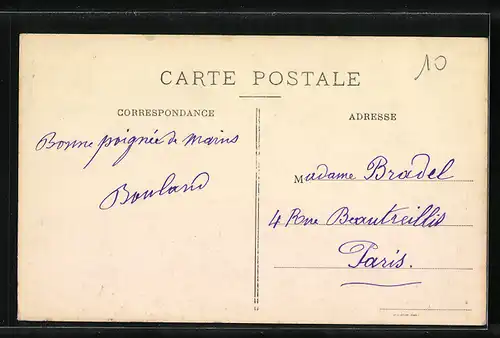 10
CARTE POSTALE
CORRESPONDANCE
ADRESSE
Bonne poignée de mains
Bouland
Madame Bradel
4 Rue Beautreillis
Paris.